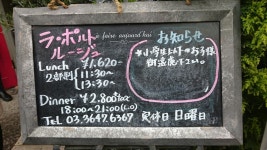 ラ・ポルト
ルージュ
faire aujourd'hui
Lunch ¥1,620-
2部制 11:30~
13:30~
Dinner ¥2,800+tax
18:00~21:00(L.O)
TEL 03.3647.6367
お知らせ
*小学生以下のお子様
御遠慮下さい。
定休日 日曜日